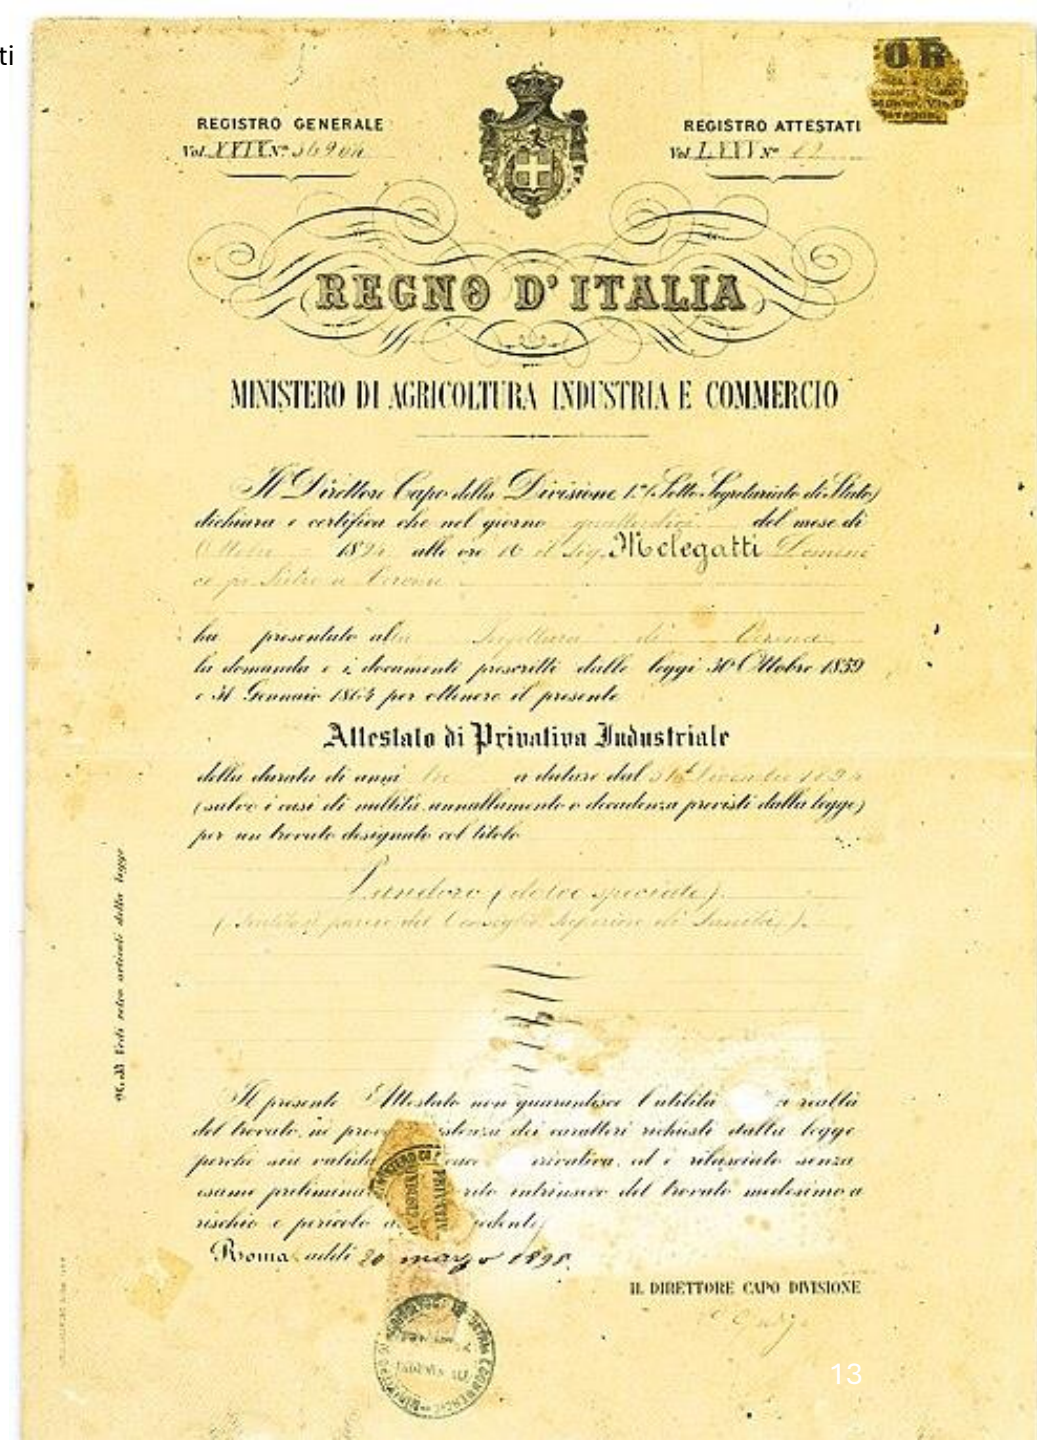 ti
OR
REGISTRO GENERALE
Vol. XXIX N° 36904
REGISTRO ATTESTATI
Vol. LXXI N°
REGNO D'ITALIA
MINISTERO DI AGRICOLTURA INDUSTRIA E COMMERCIO
Il Direttore Capo della Divisione 1.ª (Sotto-Segretariato di Stato)
dichiara e certifica che nel giorno quattordici del mese di
Ottobre 1894 alle ore 16 il Sig. Melegatti Domeni
co fu Pietro a Verona
ha presentato alla Prefettura di Verona
la domanda e i documenti prescritti dalle leggi 30 Ottobre 1859
e 31 Gennaio 1864 per ottenere il presente
Attestato di Privativa Industriale
della durata di anni tre a datare dal 31 Dicembre 1894
(salvo i casi di nullità annullamento o decadenza previsti dalla legge)
per un trovato designato col titolo
Pandoro (dolce speciale).
(Sentito il parere del Consiglio Superiore di Sanità).
N.B. Vedi retro articoli della legge
Il presente Attestato non guarantisce l'utilità realtà
del trovato, nè dei caratteri richiesti dalla legge
perchè sia valida privativa, ed è rilasciato senza
esame intrinseco del trovato medesimo a
rischio e pericolo
Roma, addì 20 marzo 1895.
IL DIRETTORE CAPO DIVISIONE
13